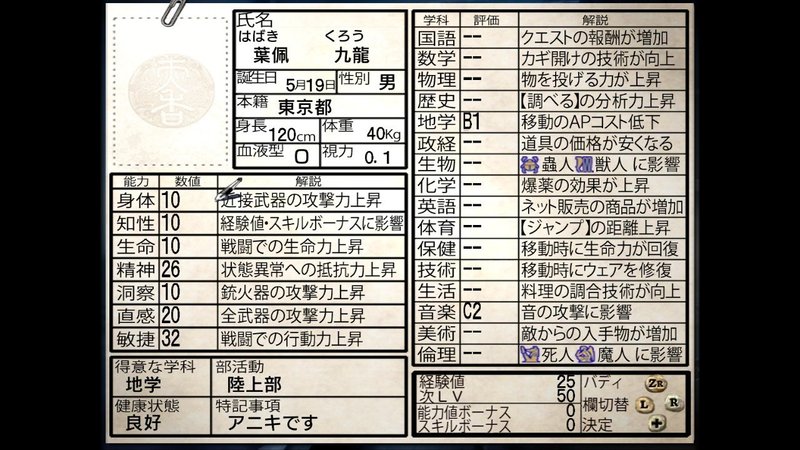 氏名
はばき くろう
葉佩 九龍
誕生日 5月19日 性別 男
本籍 東京都
身長 120cm 体重 40Kg
血液型 O 視力 0.1
能力 数値 解説
身体 10 近接武器の攻撃力上昇
知性 10 経験値・スキルボーナスに影響
生命 10 戦闘での生命力上昇
精神 26 状態異常への抵抗力上昇
洞察 10 銃火器の攻撃力上昇
直感 20 全武器の攻撃力上昇
敏捷 32 戦闘での行動力上昇
得意な学科 部活動
地学 陸上部
健康状態 特記事項
良好 アニキです
学科 評価 解説
国語 -- クエストの報酬が増加
数学 -- カギ開けの技術が向上
物理 -- 物を投げる力が上昇
歴史 -- 【調べる】の分析力上昇
地学 B1 移動のAPコスト低下
政経 -- 道具の価格が安くなる
生物 -- 蟲人 獣人に影響
化学 -- 爆薬の効果が上昇
英語 -- ネット販売の商品が増加
体育 -- 【ジャンプ】の距離上昇
保健 -- 移動時に生命力が回復
技術 -- 移動時にウェアを修復
生活 -- 料理の調合技術が向上
音楽 C2 音の攻撃に影響
美術 -- 敵からの入手物が増加
倫理 -- 死人 魔人に影響
経験値 25 バディ ZR
次LV 50 欄切替 L R
能力値ボーナス 0
スキルボーナス 0 決定 +